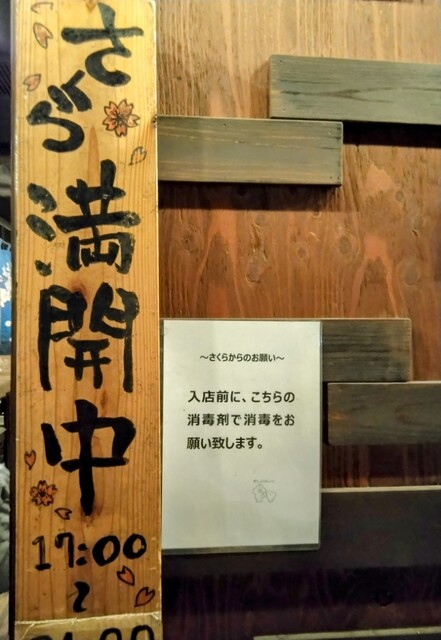 さくら満開中
17:00
〜
〜さくらからのお願い〜
入店前に、こちらの
消毒剤で消毒をお
願い致します。